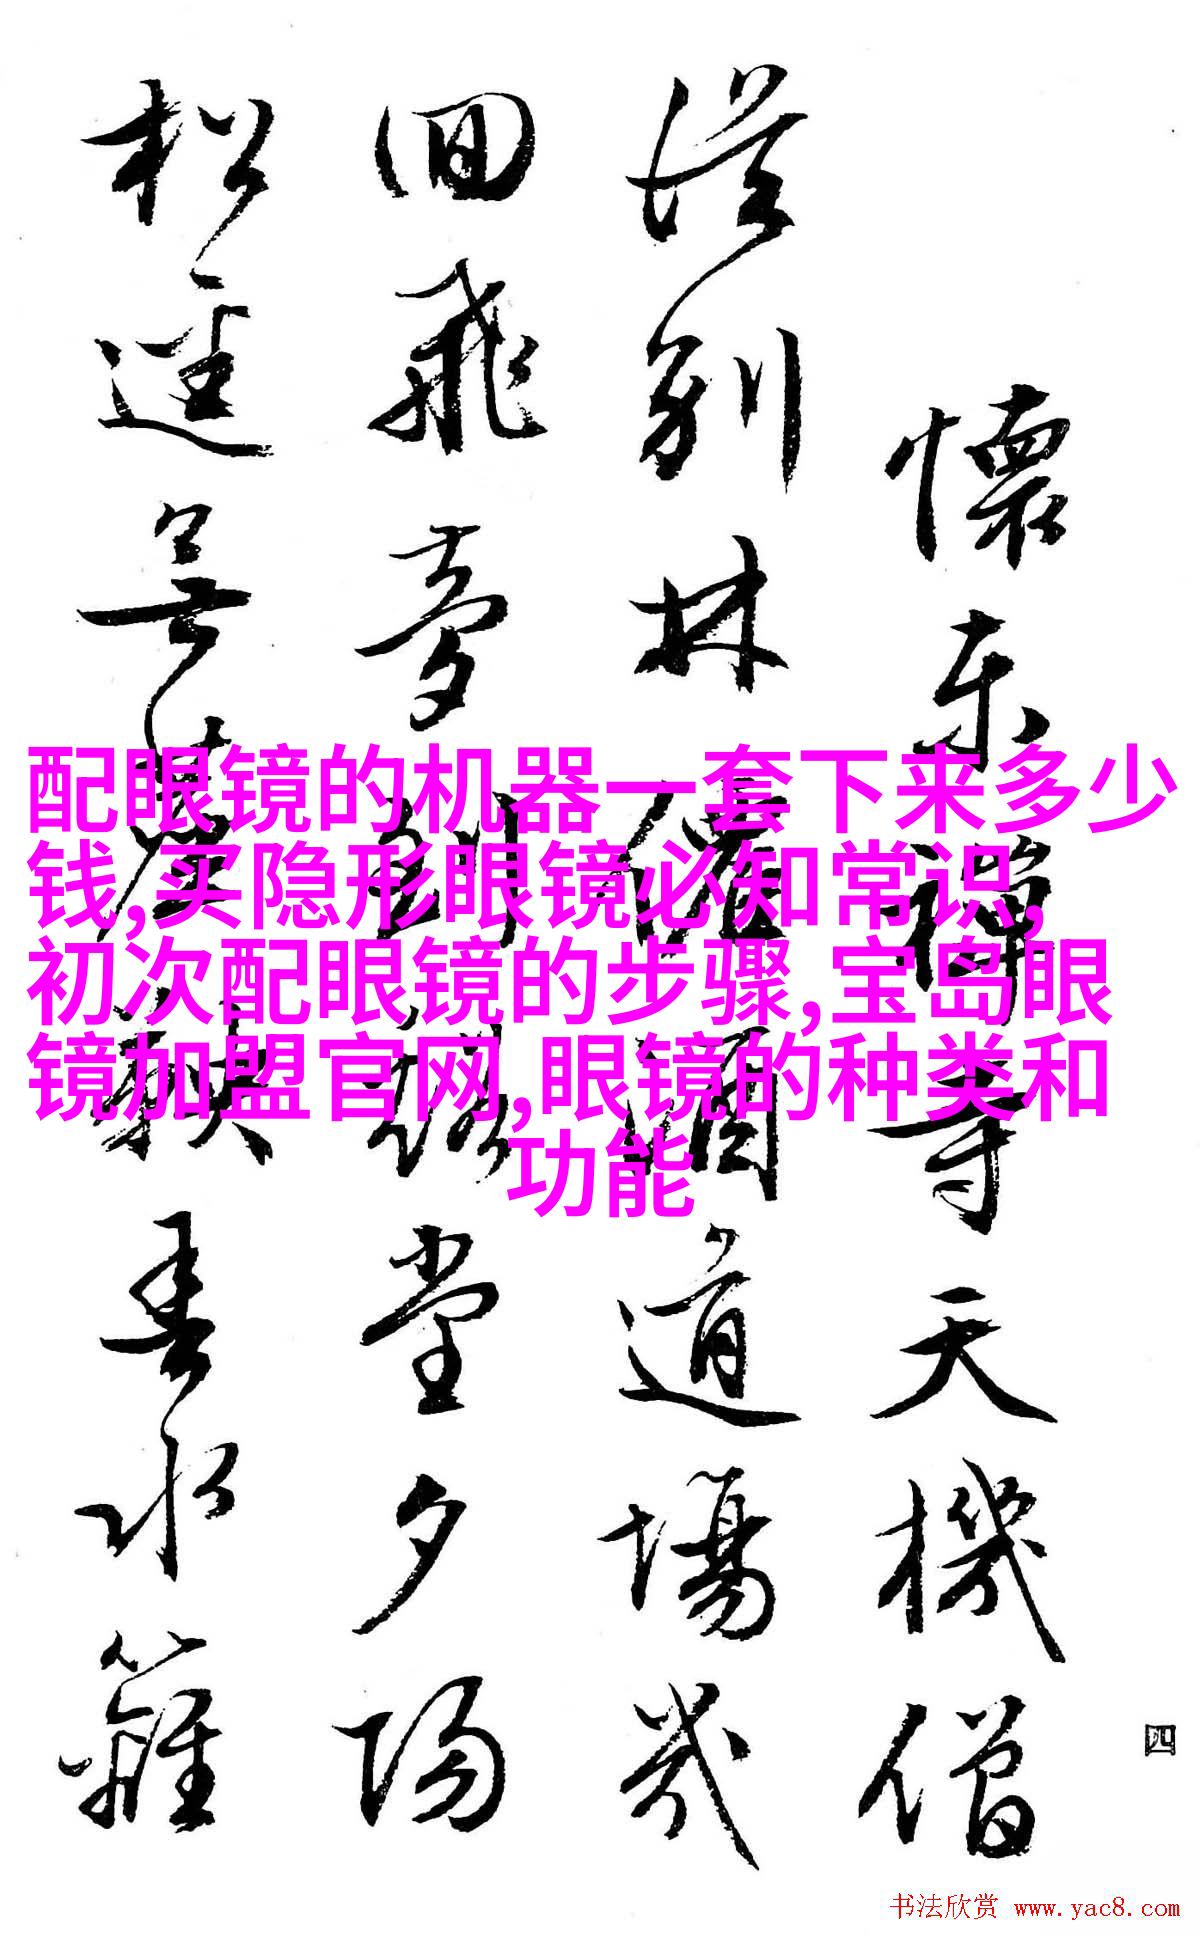 懷東禪寺天機僧
從別林酒道場幾
回飛夢到堂夕陽
松逕無塵春水籬
四
配眼镜的机器一套下来多少
钱,买隐形眼镜必知常识,
初次配眼镜的步骤,宝岛眼
镜加盟官网,眼镜的种类和
功能
书法欣赏 www.yac8.com